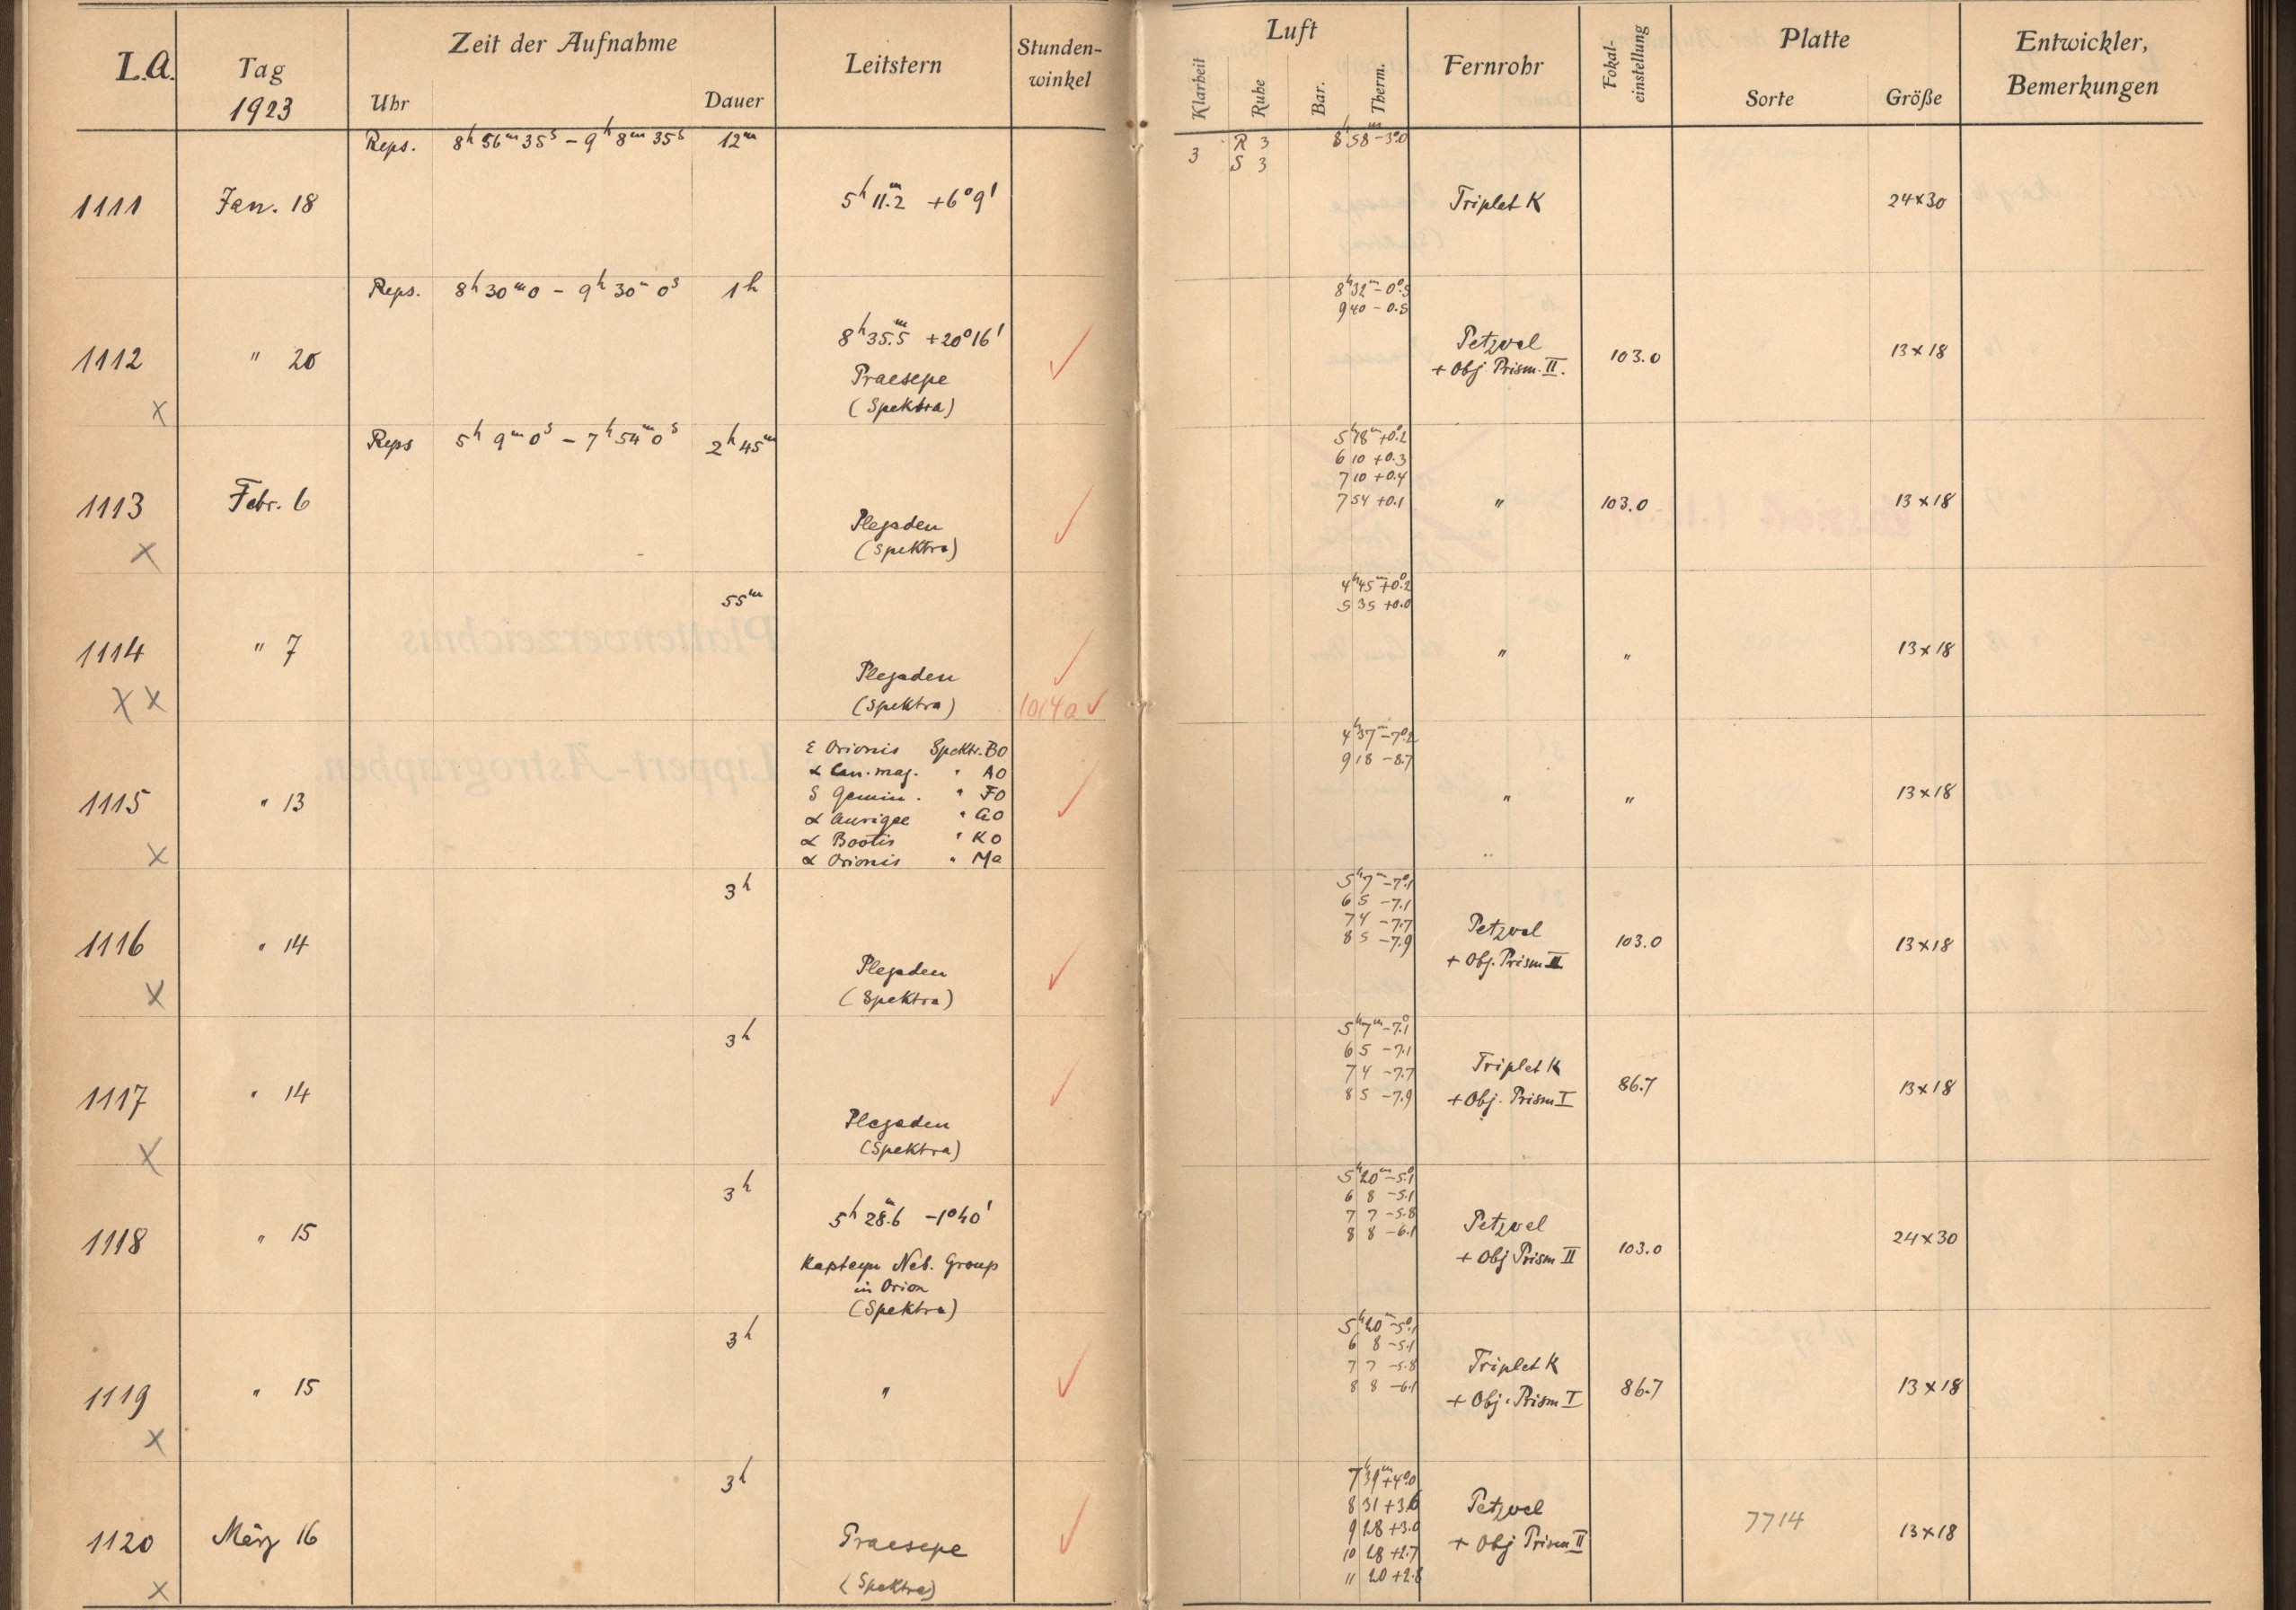 L.A. Tag 1923 Zeit der Aufnahme Uhr Dauer Leitstern Stunden-winkel Luft Klarheit Ruhe Bar. Therm. Fernrohr Fokal-einstellung Platte Sorte Größe Entwickler, Bemerkungen
Reps. 8h 56m 35s – 9h 8m 35s 12m 3 R 3 8h 58m – 3°.0
S 3
1111 Jan. 18 5h 11m.2 +6°9' Triplet K 24×30
Reps. 8h 30m 0 – 9h 30m 0s 1h 8h 32m – 0°.5
9 40 – 0.5
8h 35m.5 +20°16'
1112 " 20 Praesepe Petzval + Obj. Prism. II. 103.0 13×18
× (Spektra)
Reps 5h 9m 0s – 7h 54m 0s 2h 45m 5h 18m +0°.2
6 10 +0.3
7 10 +0.4
7 54 +0.1
1113 Febr. 6 Plejaden " 103.0 13×18
× (Spektra)
55m 4h 45m +0°.2
5 35 +0.0
1114 " 7 Plejaden " " 13×18
×× (Spektra) 1014a
ε Orionis Spektr. B0 4h 37m –7°.2
α Can. maj. " A0 9 18 –8.7
1115 " 13 δ Gemin. " F0 " " 13×18
α Aurigae " G0
α Bootis " K0
× α Orionis " Ma
3h 5h 7m –7°.1
6 5 –7.1
7 4 –7.7
8 5 –7.9
1116 " 14 Plejaden Petzval + Obj. Prism II 103.0 13×18
× (Spektra)
3h 5h 7m –7°.1
6 5 –7.1
7 4 –7.7
8 5 –7.9
1117 " 14 Plejaden Triplet K + Obj. Prism I 86.7 13×18
× (Spektra)
3h 5h 20m –5°.1
6 8 –5.1
7 7 –5.8
8 8 –6.1
1118 " 15 5h 28m.6 –1°40' Petzval + Obj Prism II 103.0 24×30
Kapteyn Neb. Group
in Orion
(Spektra)
3h 5h 20m –5°.1
6 8 –5.1
7 7 –5.8
8 8 –6.1
1119 " 15 " Triplet K + Obj. Prism I 86.7 13×18
×
3h 7h 39m +4°.0
8 31 +3.6
9 28 +3.0
10 28 +2.7
11 20 +2.8
1120 März 16 Praesepe Petzval + Obj Prism II 7714 13×18
× (Spektra)